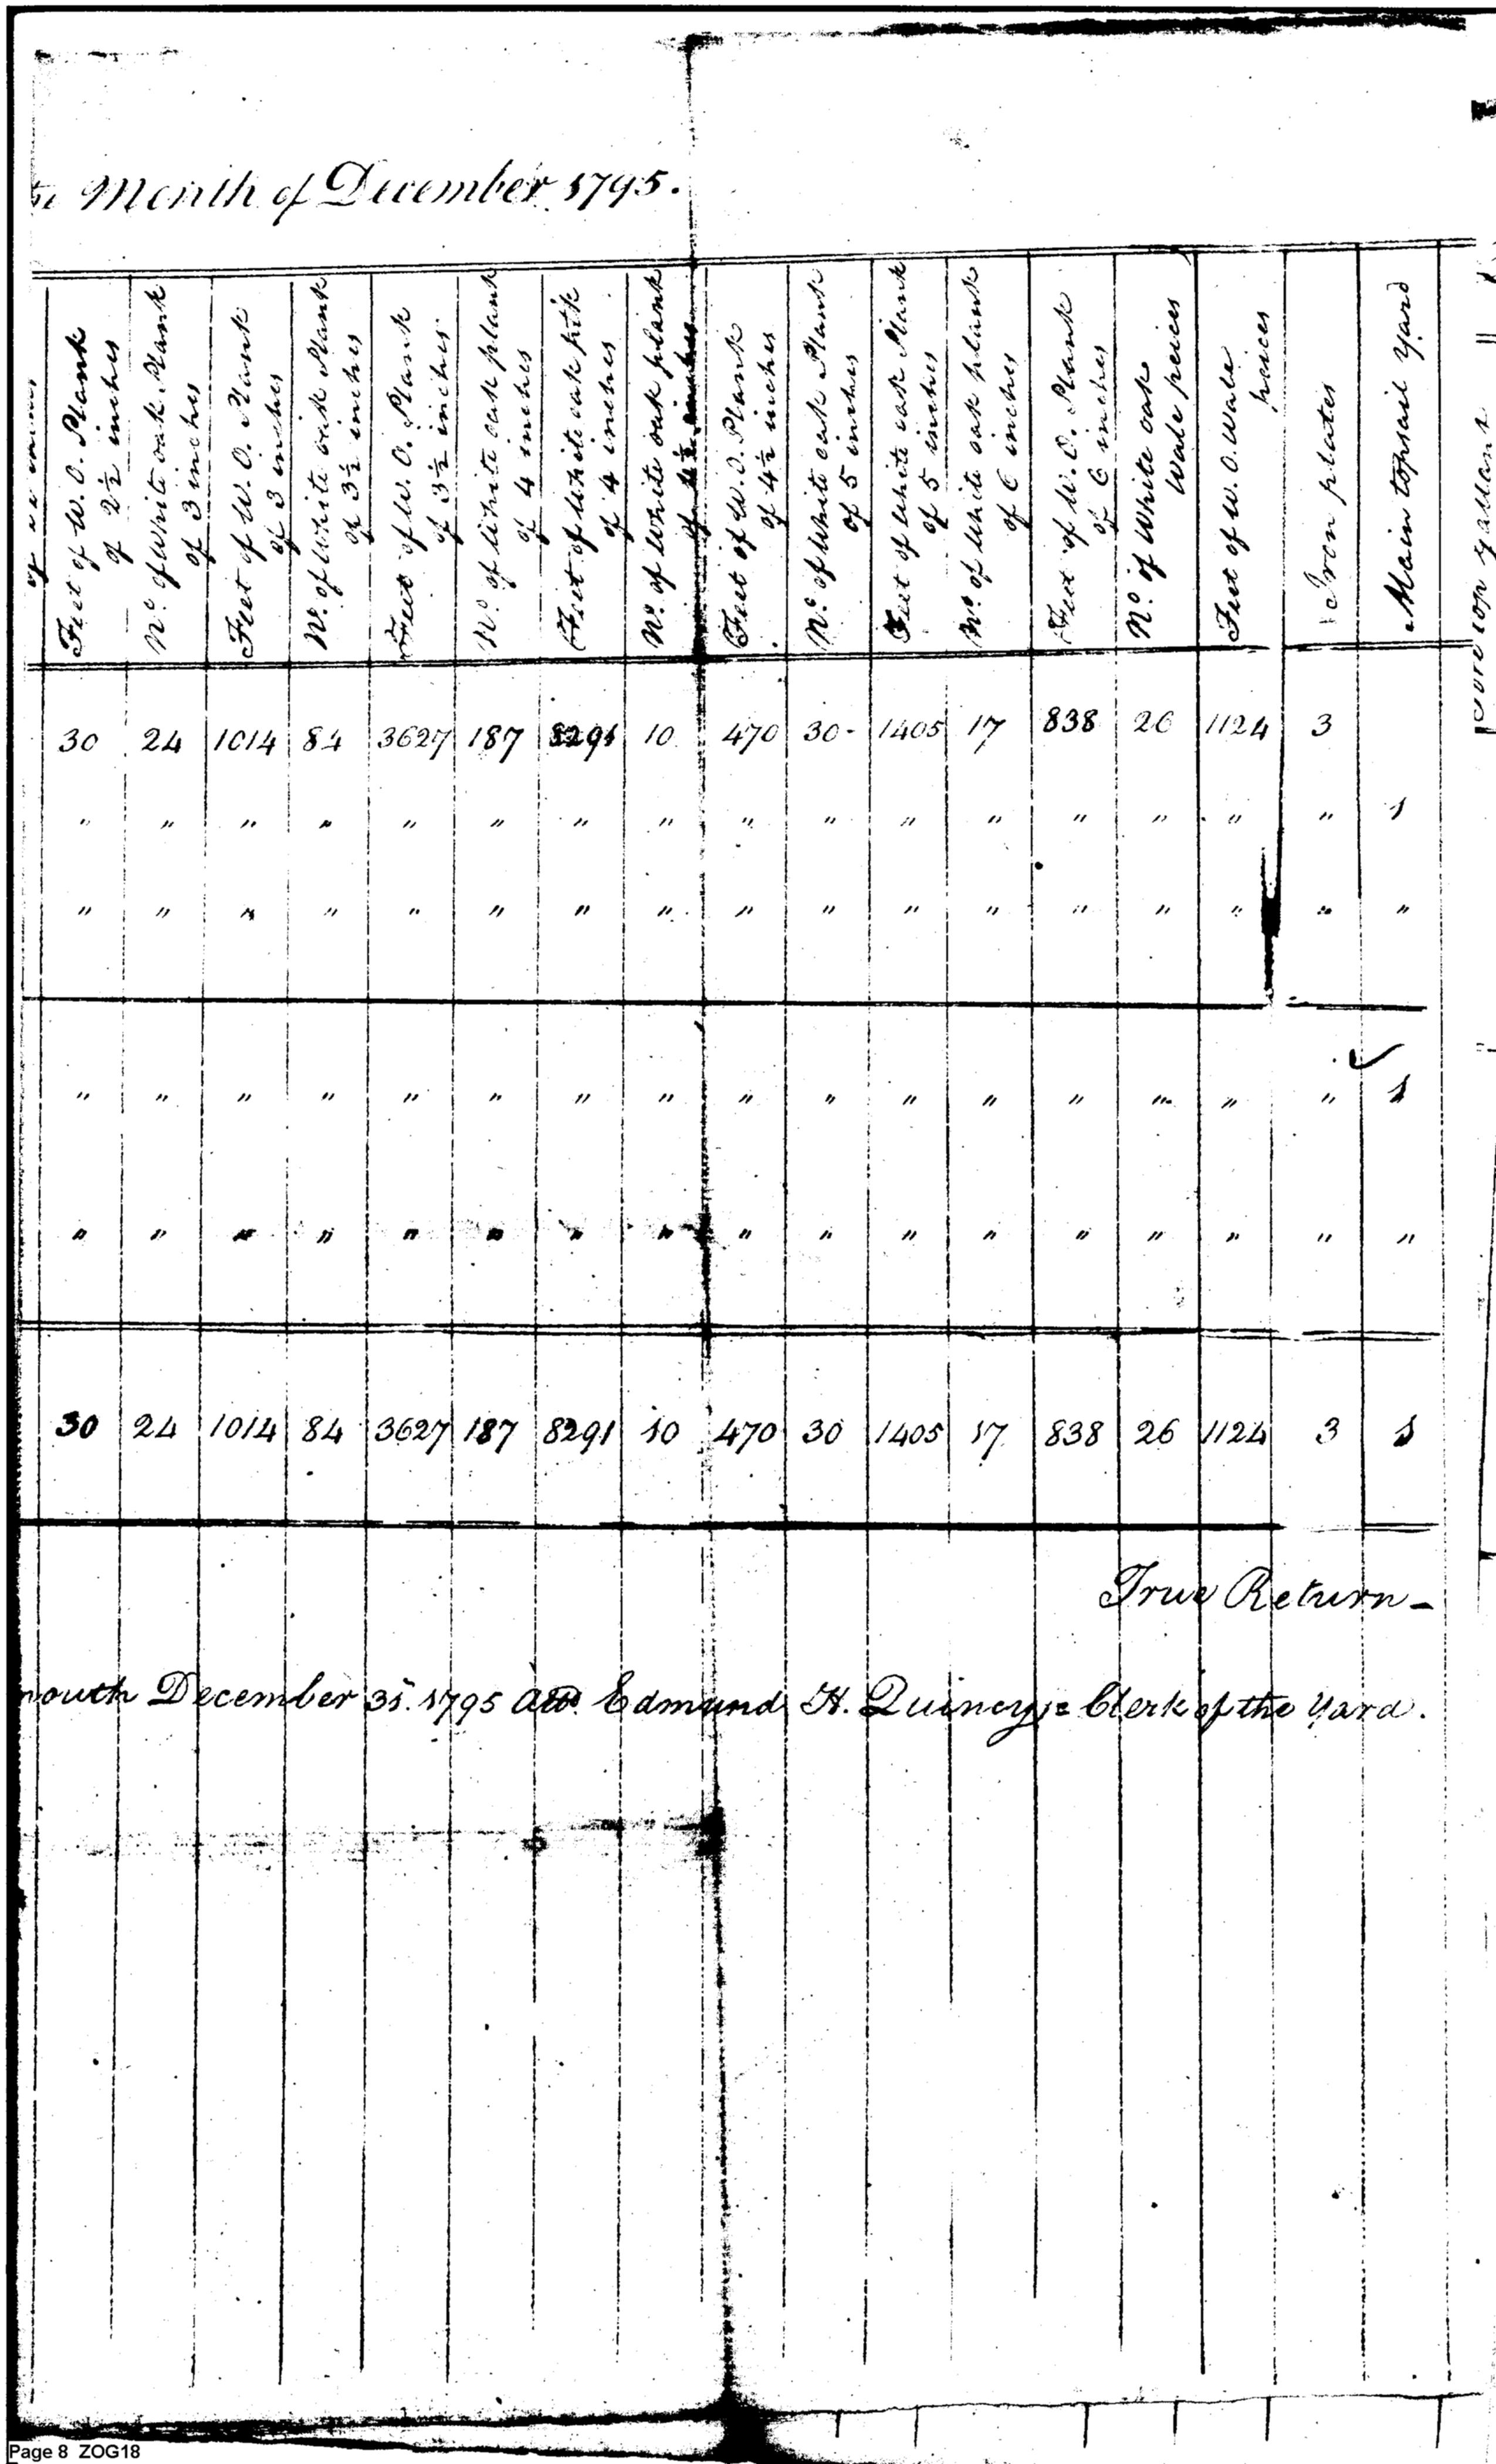 Month of December 1795.
Feet of W. O. Plank of 2½ inches
No. of White oak Plank of 3 inches
Feet of W. O. Plank of 3 inches
No. of White oak Plank of 3½ inches
Feet of W. O. Plank of 3½ inches
No. of White oak plank of 4 inches
Feet of White oak of 4 inches
No. of White oak plank of 4½ inches
Feet of W. O. Plank of 4½ inches
No. of White oak Plank of 5 inches
Feet of White oak Plank of 5 inches
No. of White oak plank of 6 inches
Feet of W. O. Plank of 6 inches
No. of White oak Wale peices
Feet of W. O. Wale peices
Iron plates
Main topsail Yard
top gallant
30 24 1014 84 3627 187 8291 10 470 30 - 1405 17 838 26 1124 3
" " " " " " " " " " " " " " " " 1
" " " " " " " " " " " " " " " " "
" " " " " " " " " " " " " " " " 1
" " " " " " " " " " " " " " " " "
30 24 1014 84 3627 187 8291 10 470 30 1405 17 838 26 1124 3 1
True Return -
mouth December 31. 1795 Edmund H. Quincy = Clerk of the Yard.
Page 8 ZOG18